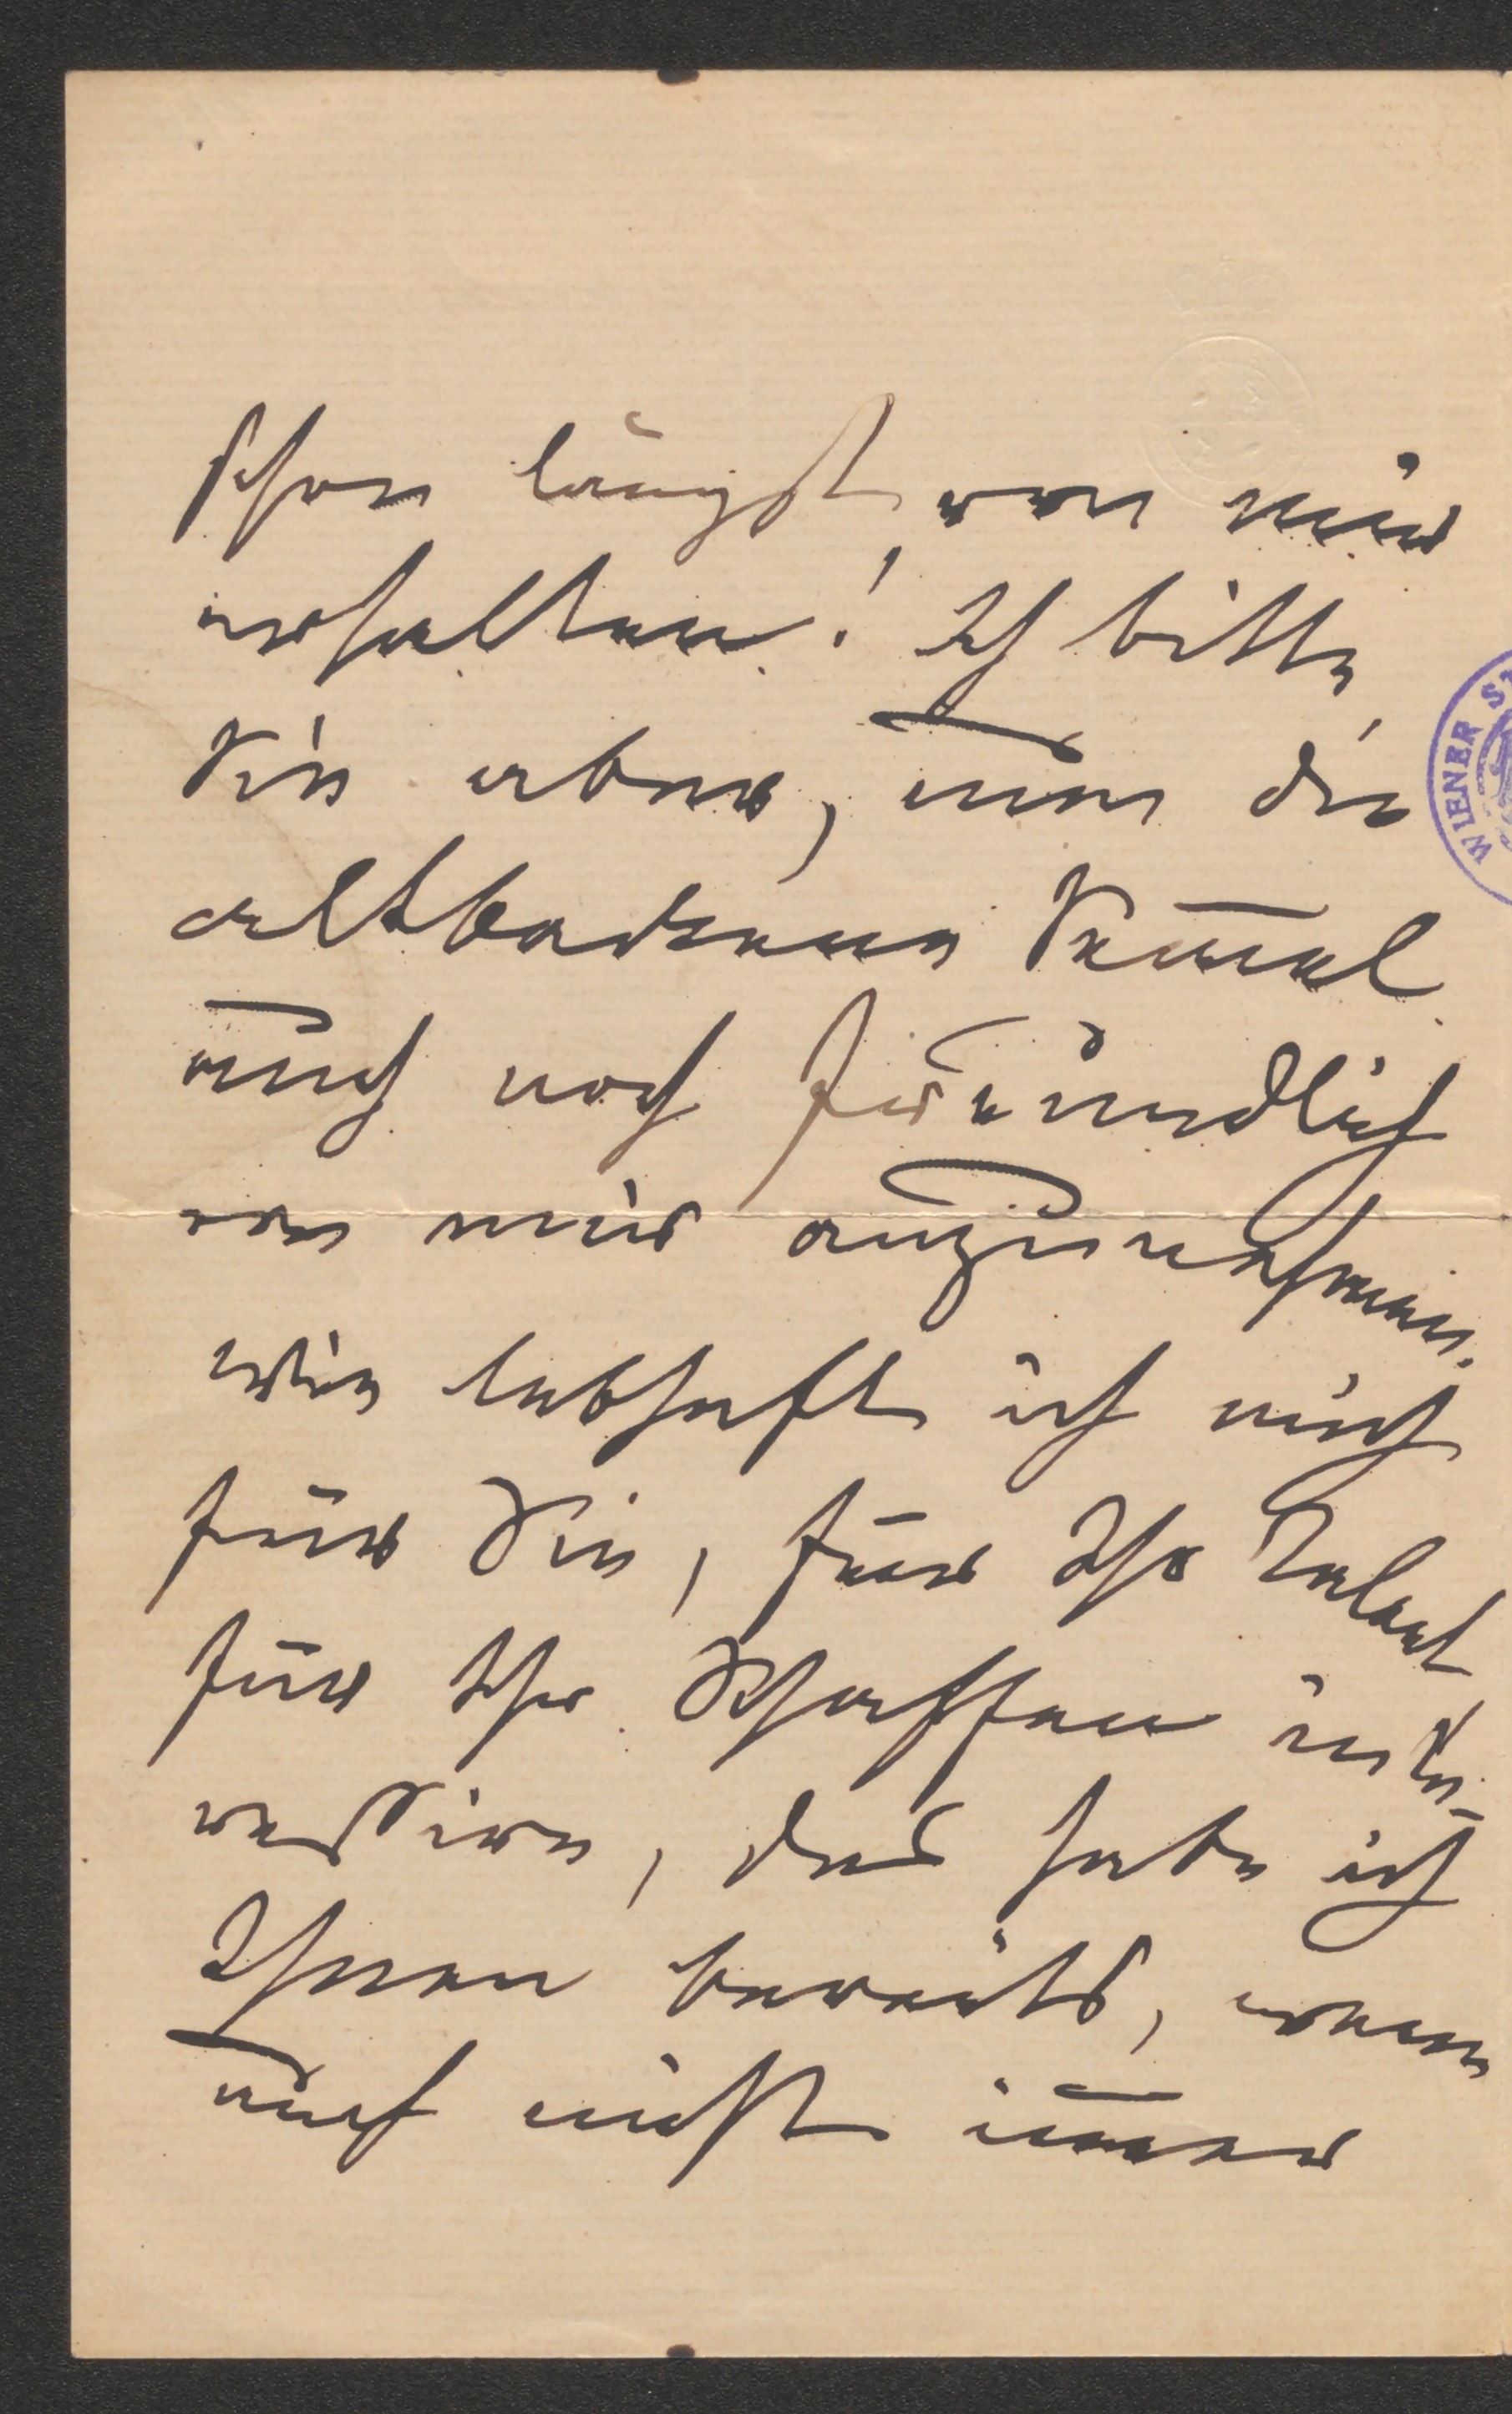 schon längst von mir
erhalten! Ich bitte
Sie aber, nun die
altbackene Sem̄el
auch noch freundlich
von mir anzunehmen.
Wie lebhaft ich mich
für Sie, für Ihr Talent
für Ihr Schaffen inte-
ressire, das habe ich
Ihnen bereits, wenn
auch nicht im̄er
WIENER